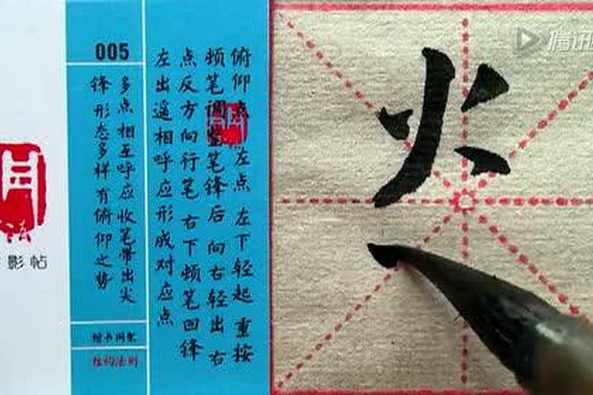 005
俯仰点 左点 左下轻起 重按
顿笔调整笔锋后向右轻出右
点反方向行笔右下顿笔回锋
左出遥相呼应形成对应点
多点相互呼应收笔带出尖
锋形态多样有俯仰之势
楷书间架
结构法则
影帖
火
腾讯